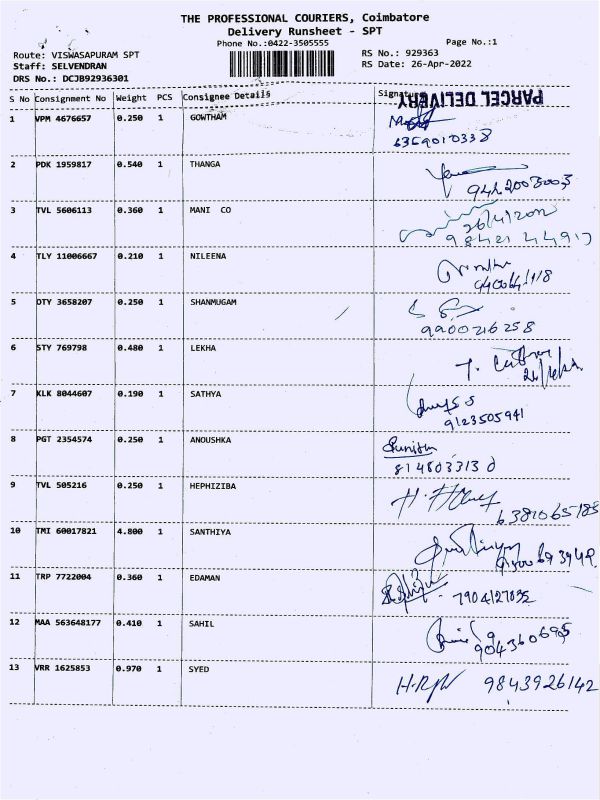 THE PROFESSIONAL COURIERS, Coimbatore
Delivery Runsheet - SPT
Phone No.:0422-3505555
Page No.:1
Route: VISWASAPURAM SPT
RS No.: 929363
Staff: SELVENDRAN
RS Date: 26-Apr-2022
DRS No.: DCJB92936301
S No Consignment No Weight PCS Consignee Details Signature
PARCEL DELIVERY
1 VPM 4676657 0.250 1 GOWTHAM
6369010338
2 PDK 1959817 0.540 1 THANGA
3 TVL 5606113 0.360 1 MANI CO
26/4/2022
98421 44917
4 TLY 11006667 0.210 1 NILEENA
5 OTY 3658207 0.250 1 SHANMUGAM
9900216258
6 STY 769798 0.480 1 LEKHA
7 KLK 8044607 0.190 1 SATHYA
9123505941
8 PGT 2354574 0.250 1 ANOUSHKA
Sunitha
8148033130
9 TVL 505216 0.250 1 HEPHIZIBA
6381065185
10 TMI 60017821 4.800 1 SANTHIYA
11 TRP 7722004 0.360 1 EDAMAN
7904127035
12 MAA 563648177 0.410 1 SAHIL
9043606985
13 VRR 1625853 0.970 1 SYED
9843926142